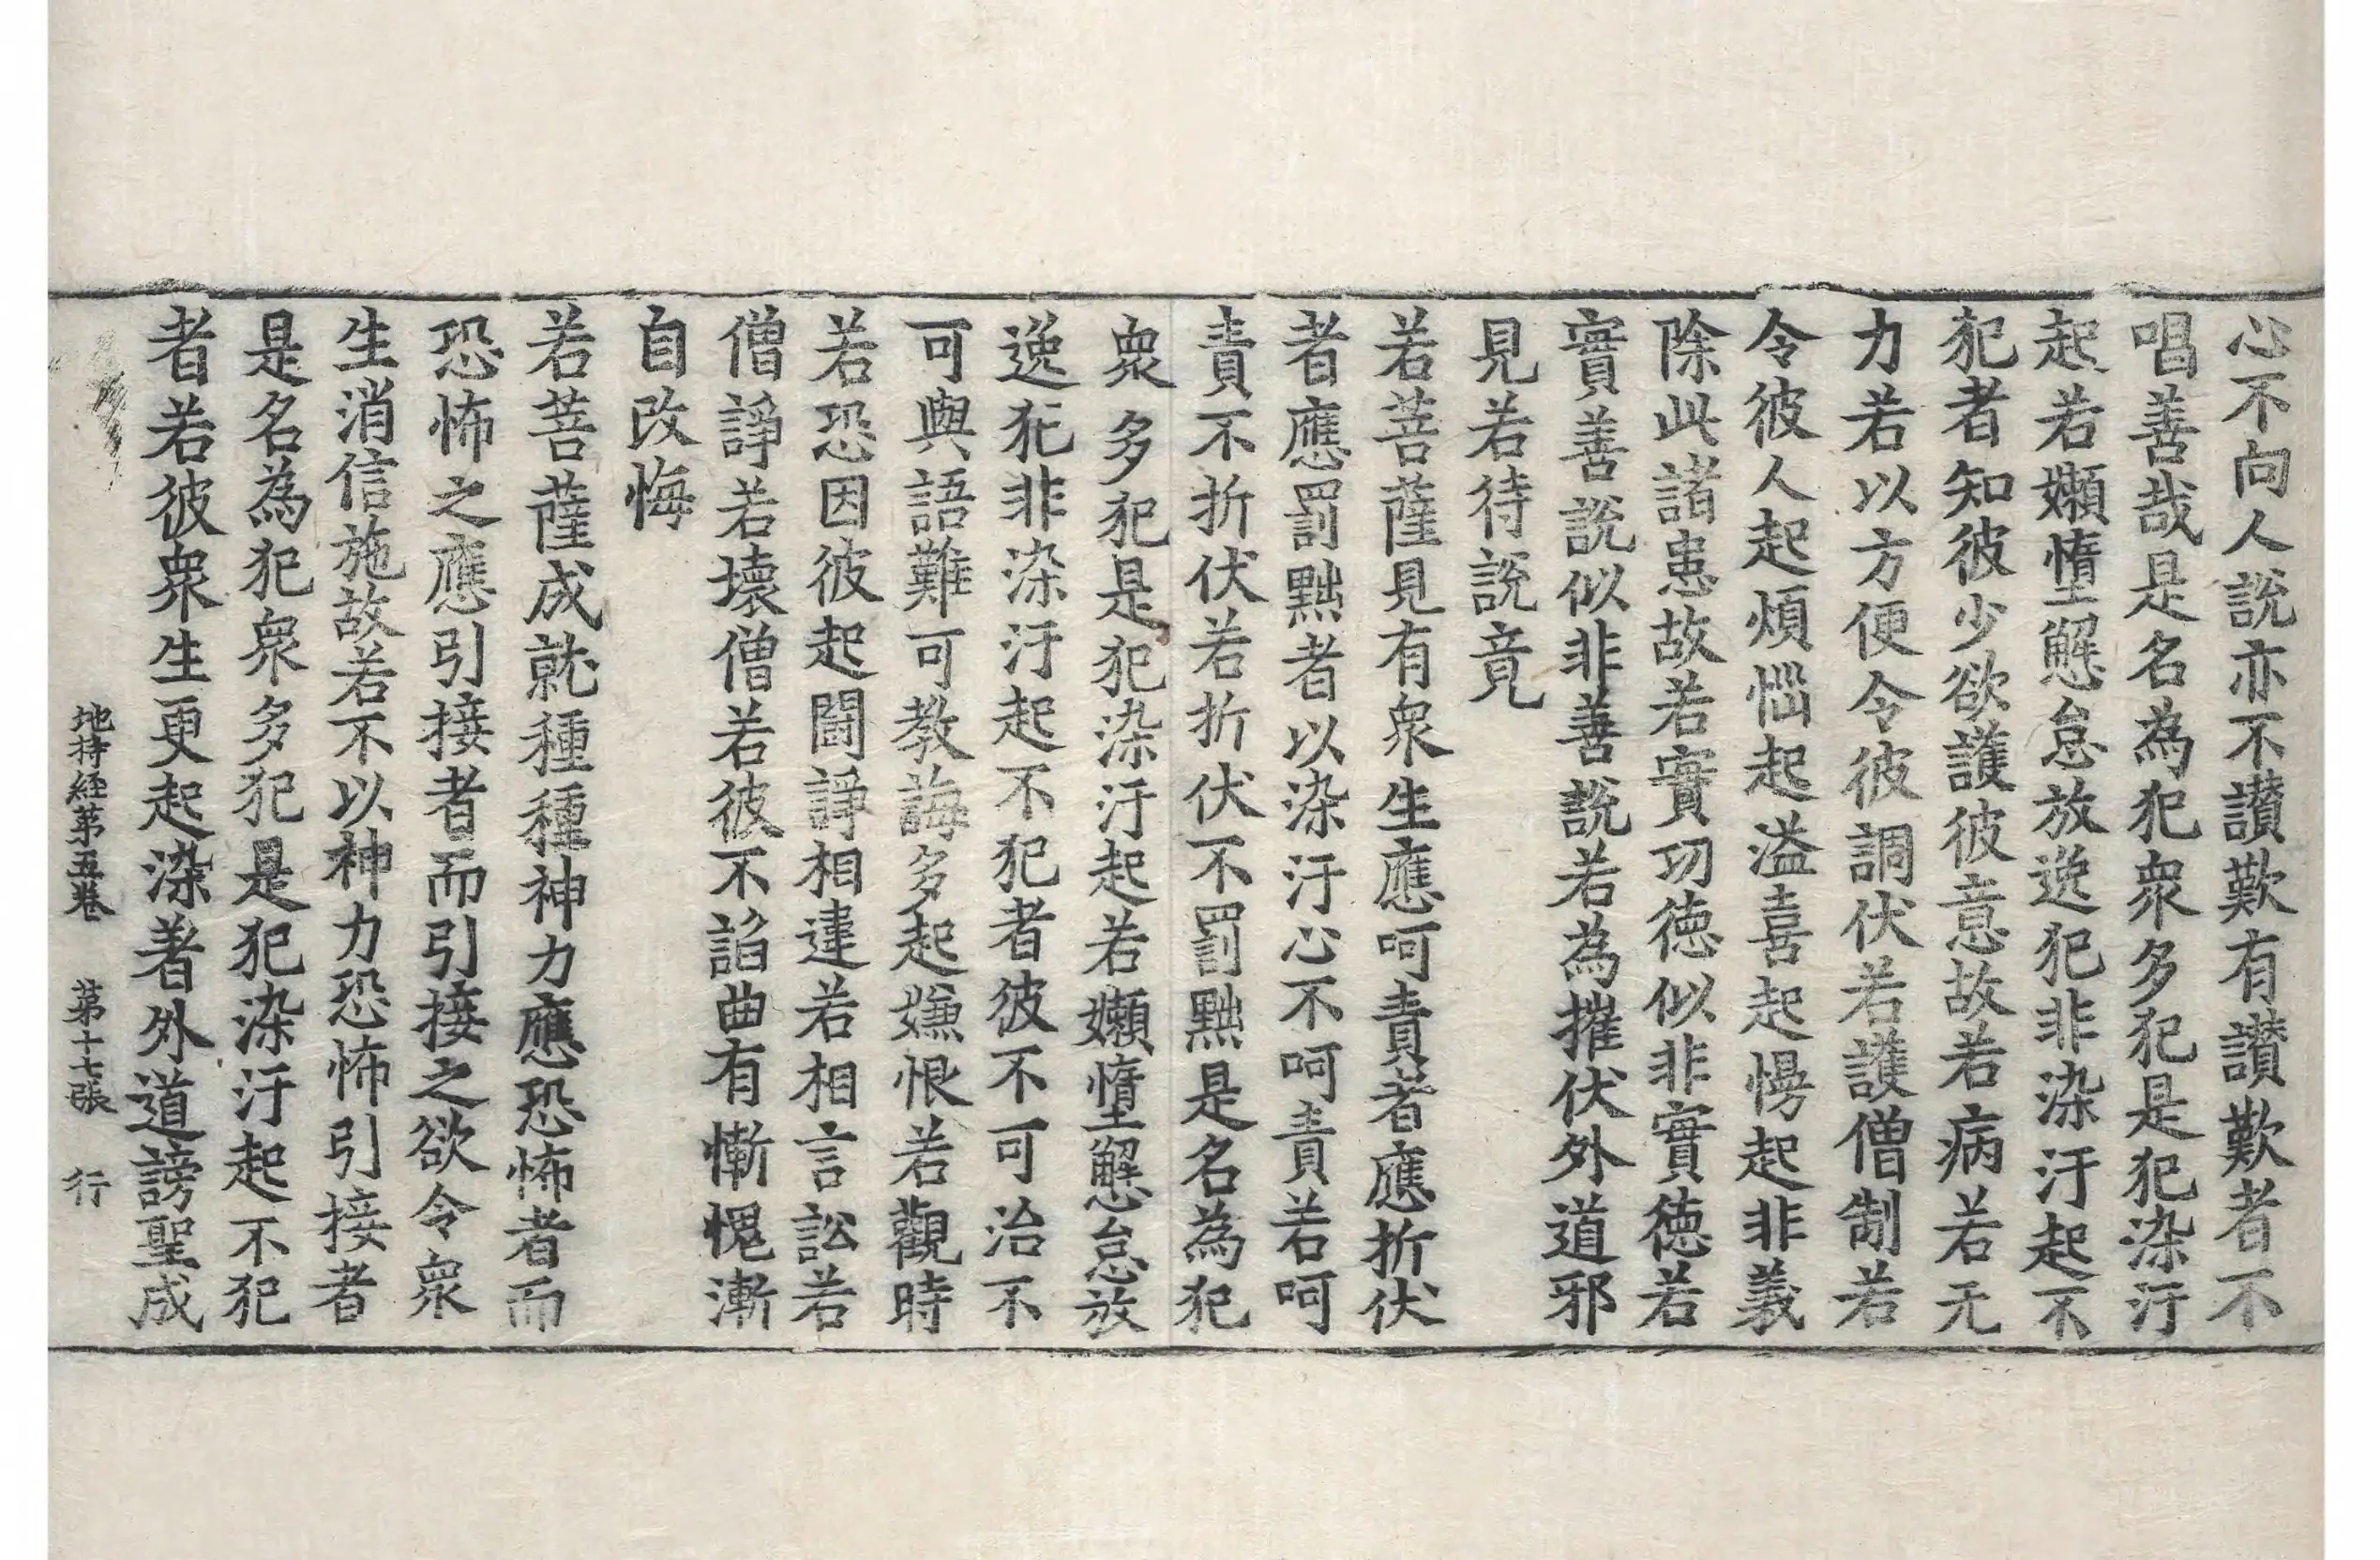 心不向人說亦不讃歎有讃歎者不
唱善哉是名為犯衆多犯是犯染汙
起若嬾惰懈怠放逸犯非染汙起不
犯者知彼少欲護彼意故若病若无
力若以方便令彼調伏若護僧制若
令彼人起煩惱起溢喜起慢起非義
除此諸患故若實功德似非實德若
實善說似非善說若為摧伏外道邪
見若待說竟
若菩薩見有衆生應呵責者應折伏
者應罰黜者以染汙心不呵責若呵
責不折伏若折伏不罰黜是名為犯
衆多犯是犯染汙起若嬾惰懈怠放
逸犯非染汙起不犯者彼不可治不
可與語難可教誨多起嫌恨若觀時
若恐因彼起鬪諍相違若相言訟若
僧諍若壞僧若彼不諂曲有慚愧漸
自改悔
若菩薩成就種種神力應恐怖者而
恐怖之應引接者而引接之欲令衆
生消信施故若不以神力恐怖引接者
是名為犯衆多犯是犯染汙起不犯
者若彼衆生更起染著外道謗聖成
地持経第五卷 第十七張 行